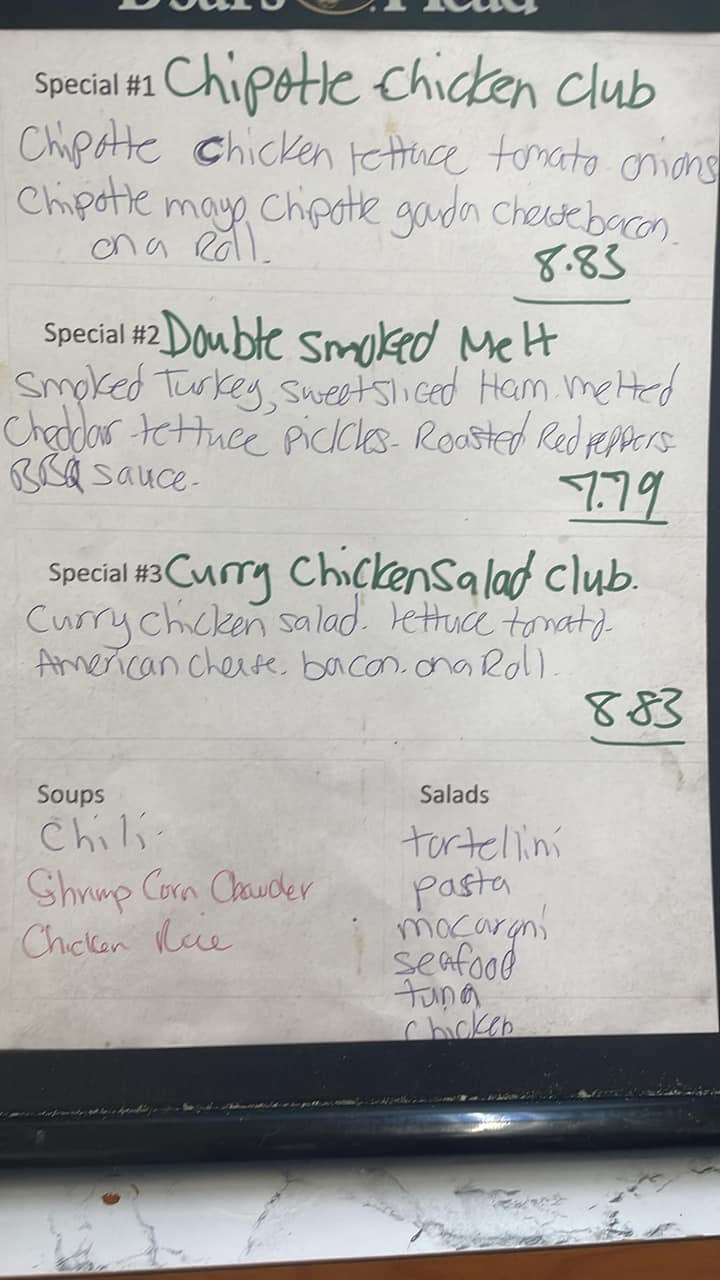 Boar's Head
Special #1 Chipotle Chicken Club
Chipotle Chicken lettuce tomato onions
Chipotle mayo, Chipotle gouda cheese bacon.
on a Roll.
8.83
Special #2 Double Smoked Melt
Smoked Turkey, sweet sliced Ham. melted
Cheddar lettuce pickles - Roasted Red peppers
BBQ sauce.
7.79
Special #3 Curry Chicken Salad Club.
Curry chicken salad. lettuce tomato
American cheese. bacon. on a Roll.
8.83
Soups
Chili
Shrimp Corn Chowder
Chicken Rice
Salads
tortellini
pasta
macaroni
seafood
tuna
Chicken